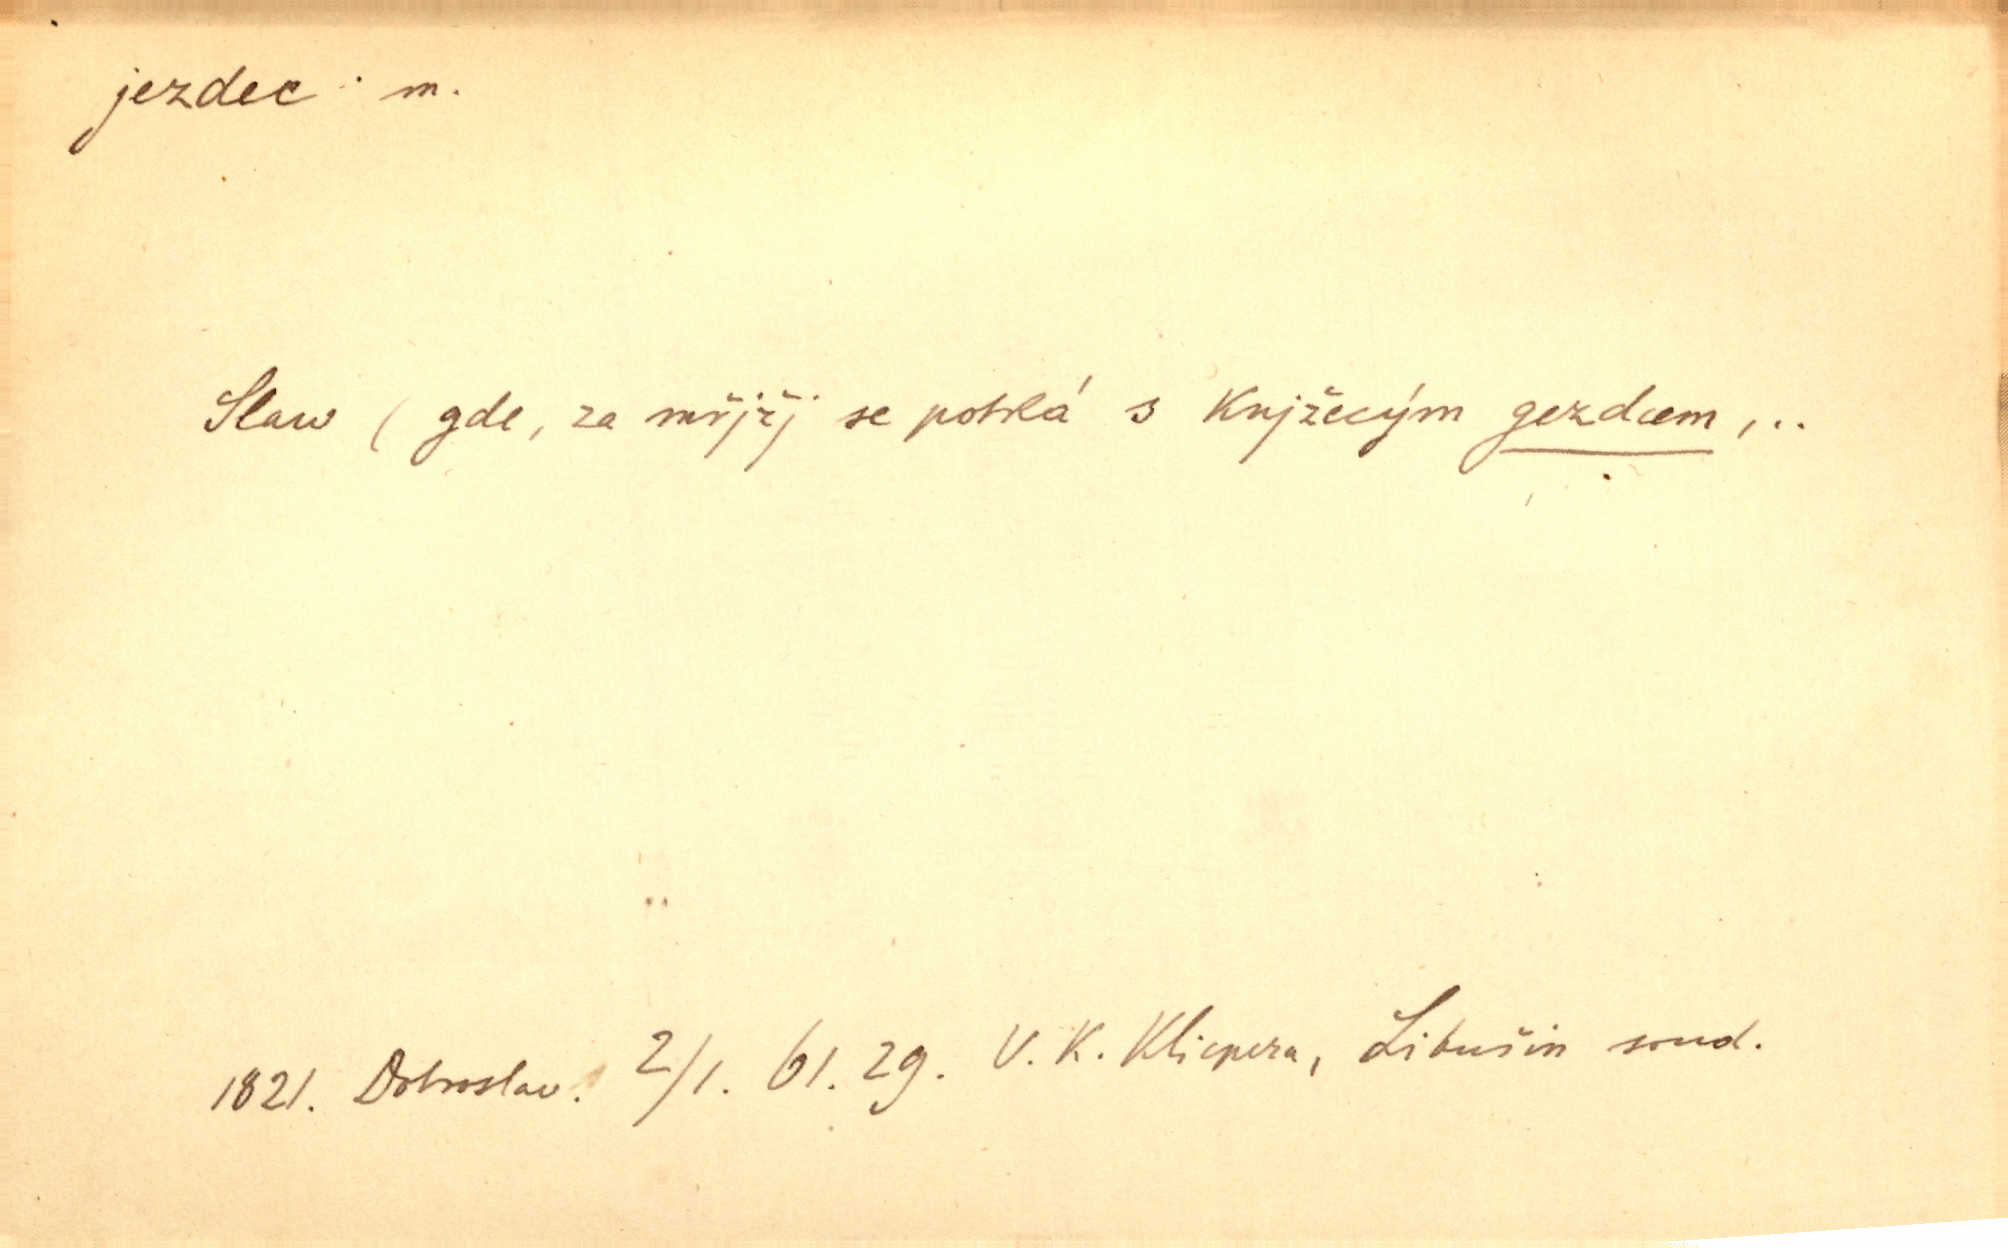 jezdec m.
Slaw ( gde, za mřjžj se potká s Knjžecým gezdcem,..
1821. Dobroslav. 2/1. 61. 29. V. K. Klicpera, Libušin soud.